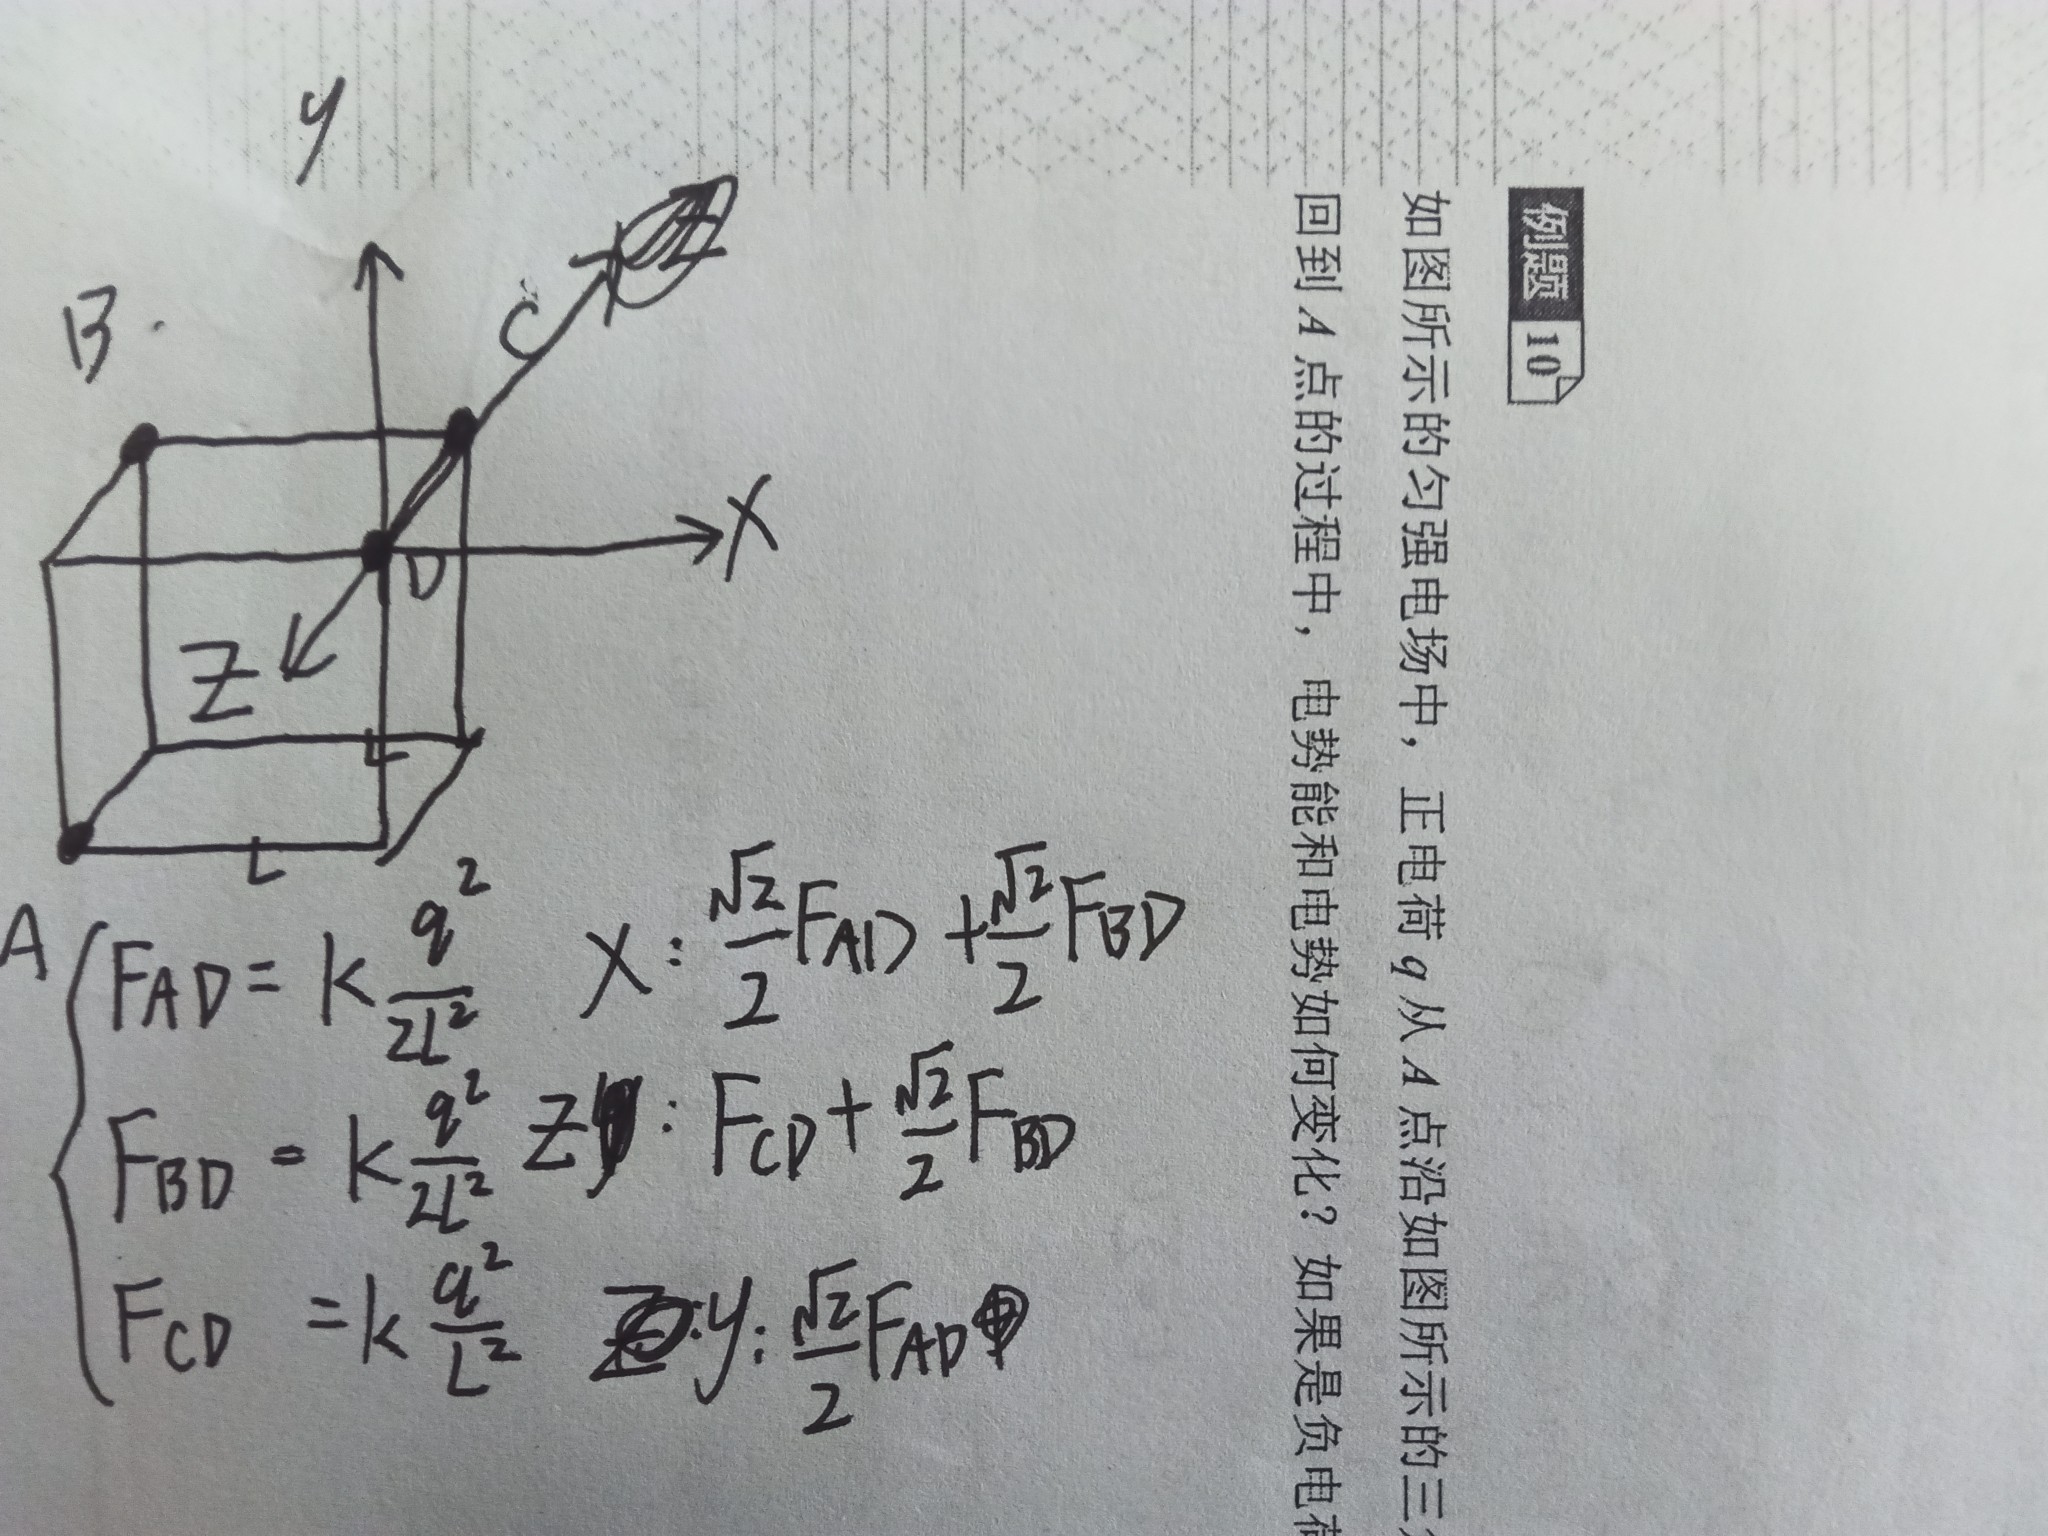 例题 10
如图所示的匀强电场中，正电荷 q 从 A 点沿如图所示的三
回到 A 点的过程中，电势能和电势如何变化？如果是负电荷
y
B
C
X
D
Z
L
L
A
F_AD = k q²/2L²
X: √2/2 F_AD + √2/2 F_BD
F_BD = k q²/2L²
Z: F_CD + √2/2 F_BD
F_CD = k q²/L²
y: √2/2 F_AD